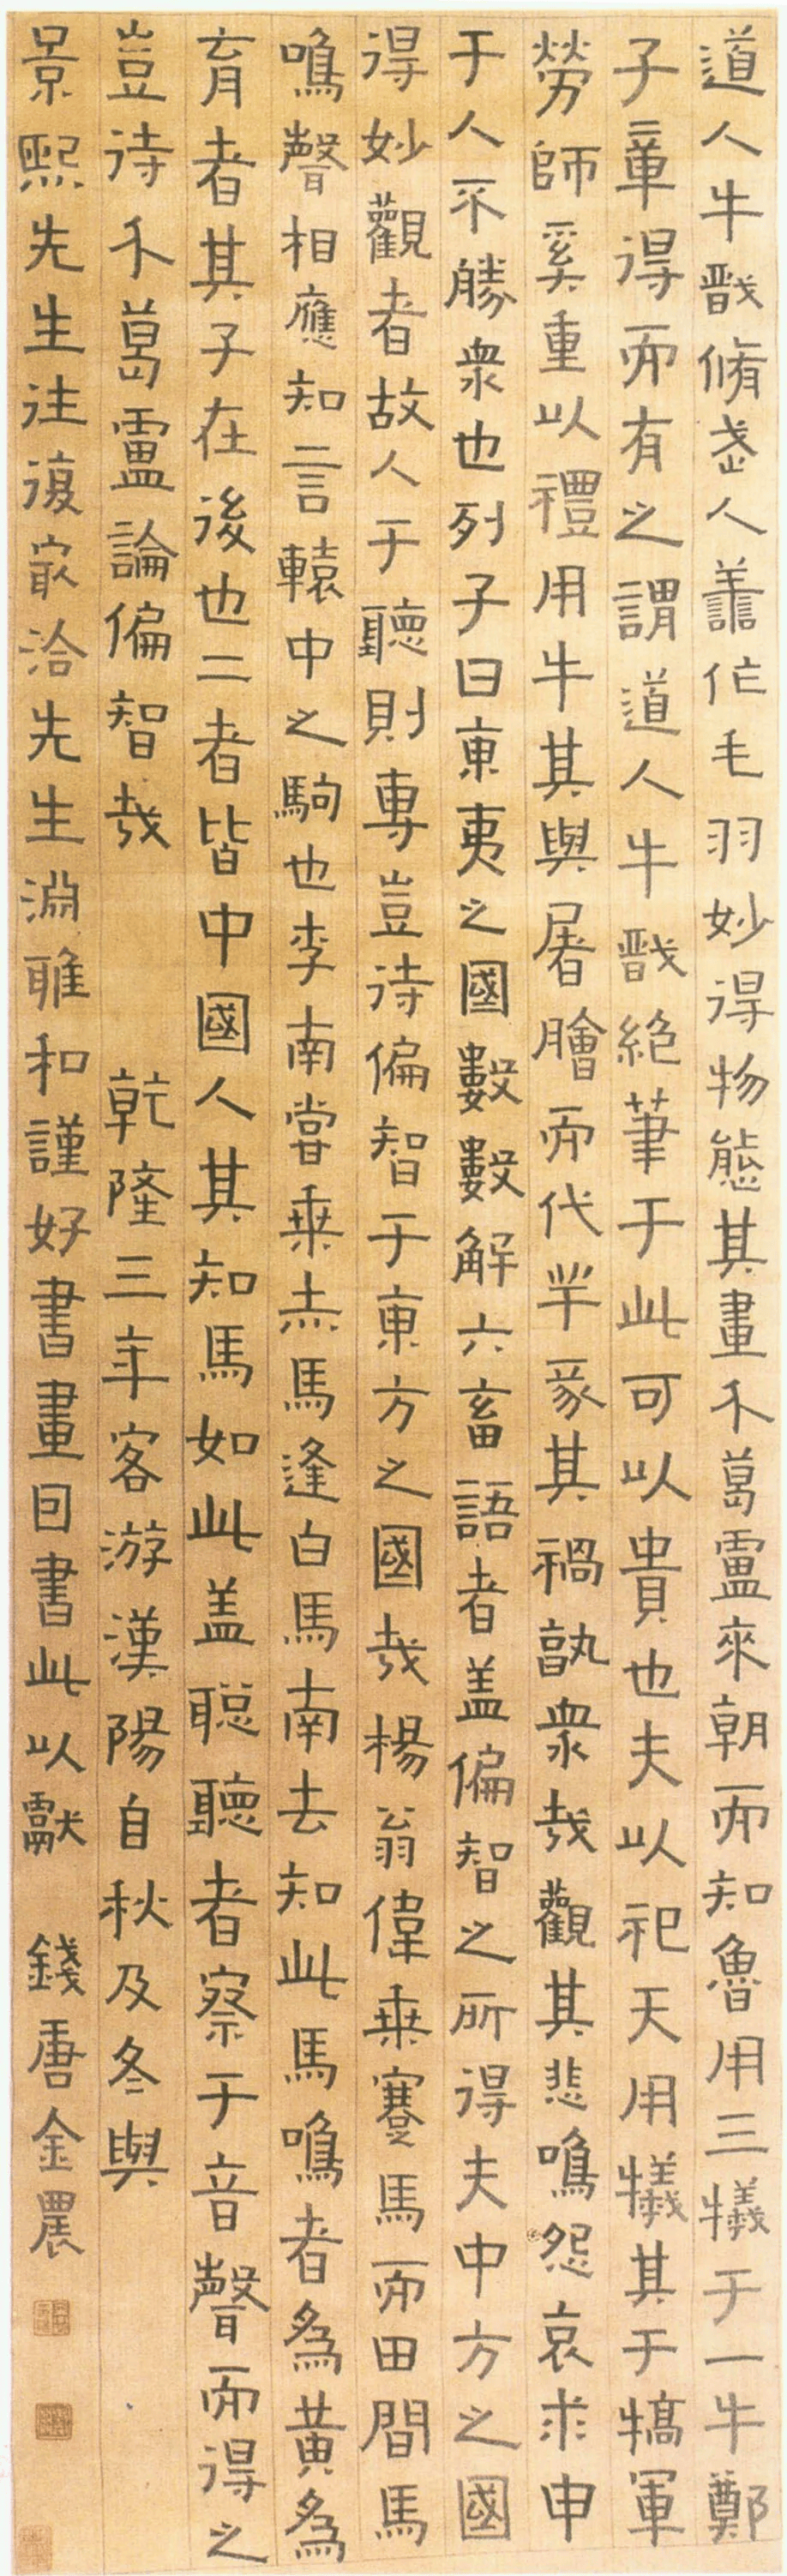 道人牛戩脩武人譱作毛羽妙得物態其畫介葛盧來朝而知魯用三犧于一牛鄭
子章得而有之謂道人牛戩絕筆于此可以貴也夫以祀天用犧其于犒軍
勞師奚重以禮用牛其與屠膾而代羊豕其禍孰衆哉觀其悲鳴怨哀求申
于人不勝衆也列子曰東夷之國數數解六畜語者盖偏智之所得夫中方之國
得妙觀者故人于聽則專豈待偏智于東方之國哉楊翁偉乘蹇馬而田間馬
鳴聲相應知言轅中之駒也李南嘗乘赤馬逢白馬南去知此馬鳴者為黃為
育者其子在後也二者皆中國人其知馬如此盖聰聽者察于音聲而得之
豈待介葛盧論偏智哉 乾隆三年客游漢陽自秋及冬與
景熙先生往復冣洽先生淵雅和謹好書畫因書此以獻 錢唐金農